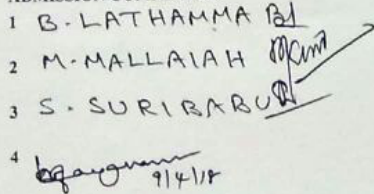 1 B. LATHAMMA
2 M. MALLAIAH
3 S. SURIBABU
4
9/4/18